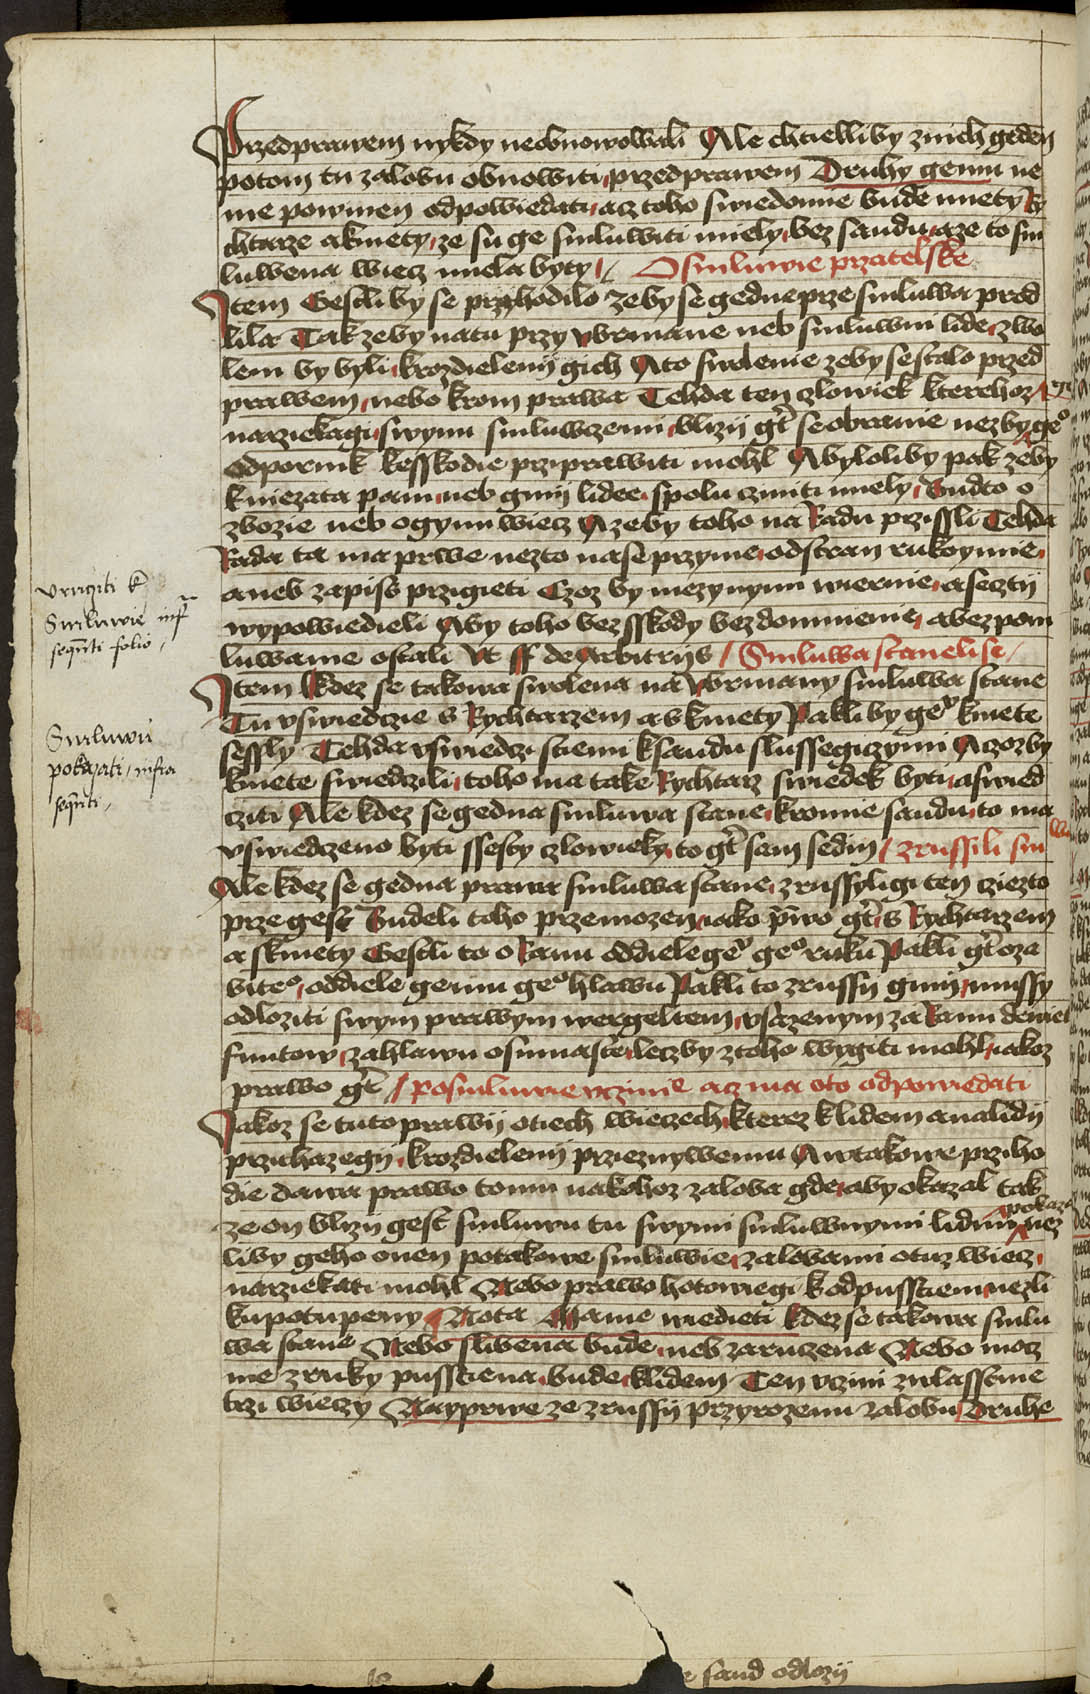 Przedprawem nykdy neobnowowali Ale chtielliby znich geden
potom tu zalobu obnowiti przedprawem Druhy gemu ne
nie powinen odpowiedati acz toho swiedomie bude mnety Ry
chtarze akmety ze su ge smluwiti mnely bez saudu aze to sm
luwena wiecz mnela byty O smluwie przatelske
Item Gestliby se przyhodilo zeby se gedne prze smluwa prod
lila Tak zeby natu przy vbrmane neb smluwni lide zwo
leni by byli krozdieleny gich Ato swolenie zeby se stalo przed
prawem nebo krom prawa Tehda ten czlowiek kterehoz
narziekagi swymi smluwczemi blizij gt se obranie nez by geo
odpornik kesskodie przyprawiti mohl Abyloliby pak zeby
kniezata pani neb ginij lidee spolu czniti mnely Budto o
zbozie neb ogynu wiecz Azeby toho na Radu przissli Tehda
Rada ta ma prwe nezto nase przyme odstran rukoymie
aneb zapiss przigieti Czoz by mezynymi wiernie a seztij
wypowiedieli Aby toho bez sskody bez domnienie abez pom
luwanie ostali Vt ff de Arbitrijs Smluwa stanelise
Item Kdez se takowa swolena na Vbrmany smluwa stane
Tu vswiedczie s Rychtarzem a skmety Pakliby ge kmete
sessly Tehda vswiedczi stiemi ksaudu slussegiczymi Aczozby
kmete swiedczili toho ma take Rychtarz swiedek byti aswied
cziti Ale kdez se gedna smluwa stane kromie saudu to ma
vswiedczeno byti ssesty czlowieky to gt sam sedm zrussili sm
Ale kdez se gedna prawa smluwa stane zrussyligi ten cziezto
prze gest Budeli toho przemozen iako prwo gt s Rychtarzem
a skmety Gestli to o Ranu oddiele ge geo ruku Pakli gt oza
biteo oddiele gemu geo hlawu Pakli to zrussij ginij mussy
odloziti swym prawym wergeltem vsazenym za Ranu dewiet
funtow zahlawu osmnaste leczby ztoho wygiti mohl iakoz
prawo gt posmluwie vczinie acz ma oto odpowiedati
Jakoz se tuto prawij otiech wieczech kterez klidem analidij
przichazegij krozdielenij prziezniwemu Awtakowe przyho
die dawa prawo tomu nakohoz zaloba gde aby okazal tak
ze on blizij gest smluwu tu swymi smluwnymi lidmi pokaza nez
liby geho onen potakowe smluwie zalobami otuz wiecz
narziekati mohl Nebo prawo hotowiegi kodpusstieni nezli
kupotupeny Nota Mame wiedieti kdez se takowa smlu
wa stane Nebo slibena bude neb zaruczena Nebo mocz
nie zruky pusstiena bude klidem Ten vczini zwlasstnie
trzi wieczy Nayprwe ze zrussij przyrozenu zalobu Druhe
vrczyti k
Smluwie inf
sequenti folio
Smluwu
pokazati infra
sequenti
saud odlozij